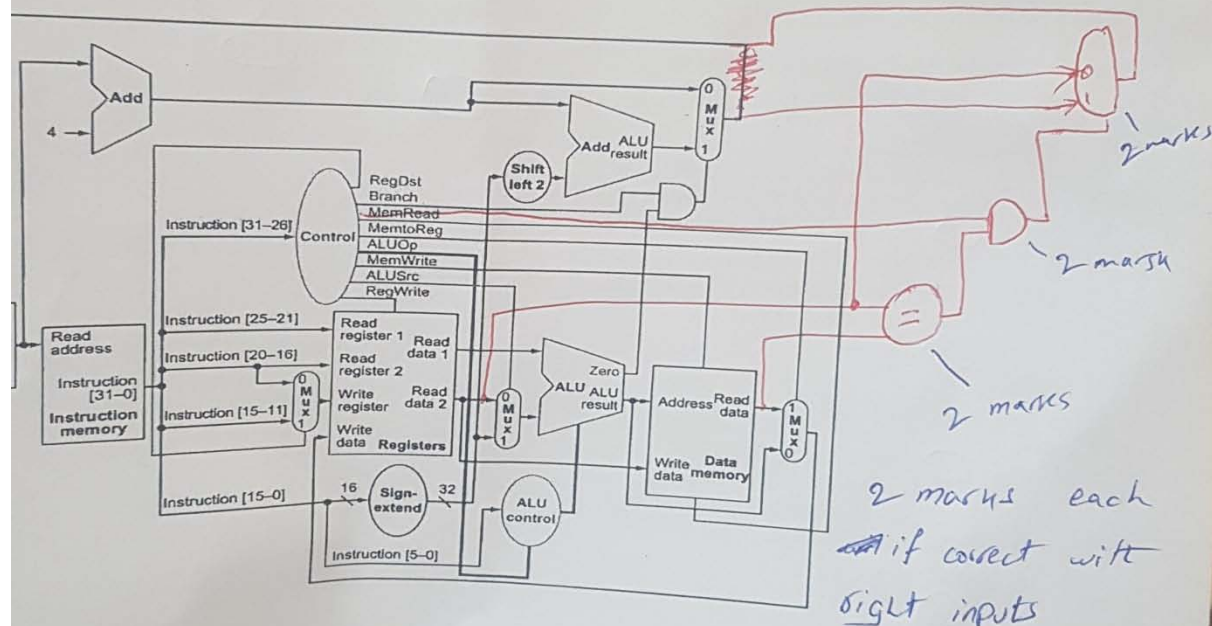 Add
4
0
Mux
1
Add ALU result
Shift left 2
RegDst
Branch
MemRead
MemtoReg
ALUOp
MemWrite
ALUSrc
RegWrite
Instruction [31–26]
Control
Instruction [25–21]
Instruction [20–16]
Instruction [15–11]
Instruction [15–0]
Instruction [5–0]
Read address
Instruction [31–0]
Instruction memory
0
Mux
1
Read register 1
Read register 2
Write register
Write data
Read data 1
Read data 2
Registers
16
Sign-extend
32
0
Mux
1
Zero
ALU
ALU result
ALU control
Address
Read data
Write data
Data memory
1
Mux
0
0
1
2 marks
2 marsk
=
2 marks
2 marks each
if correct with
right inputs